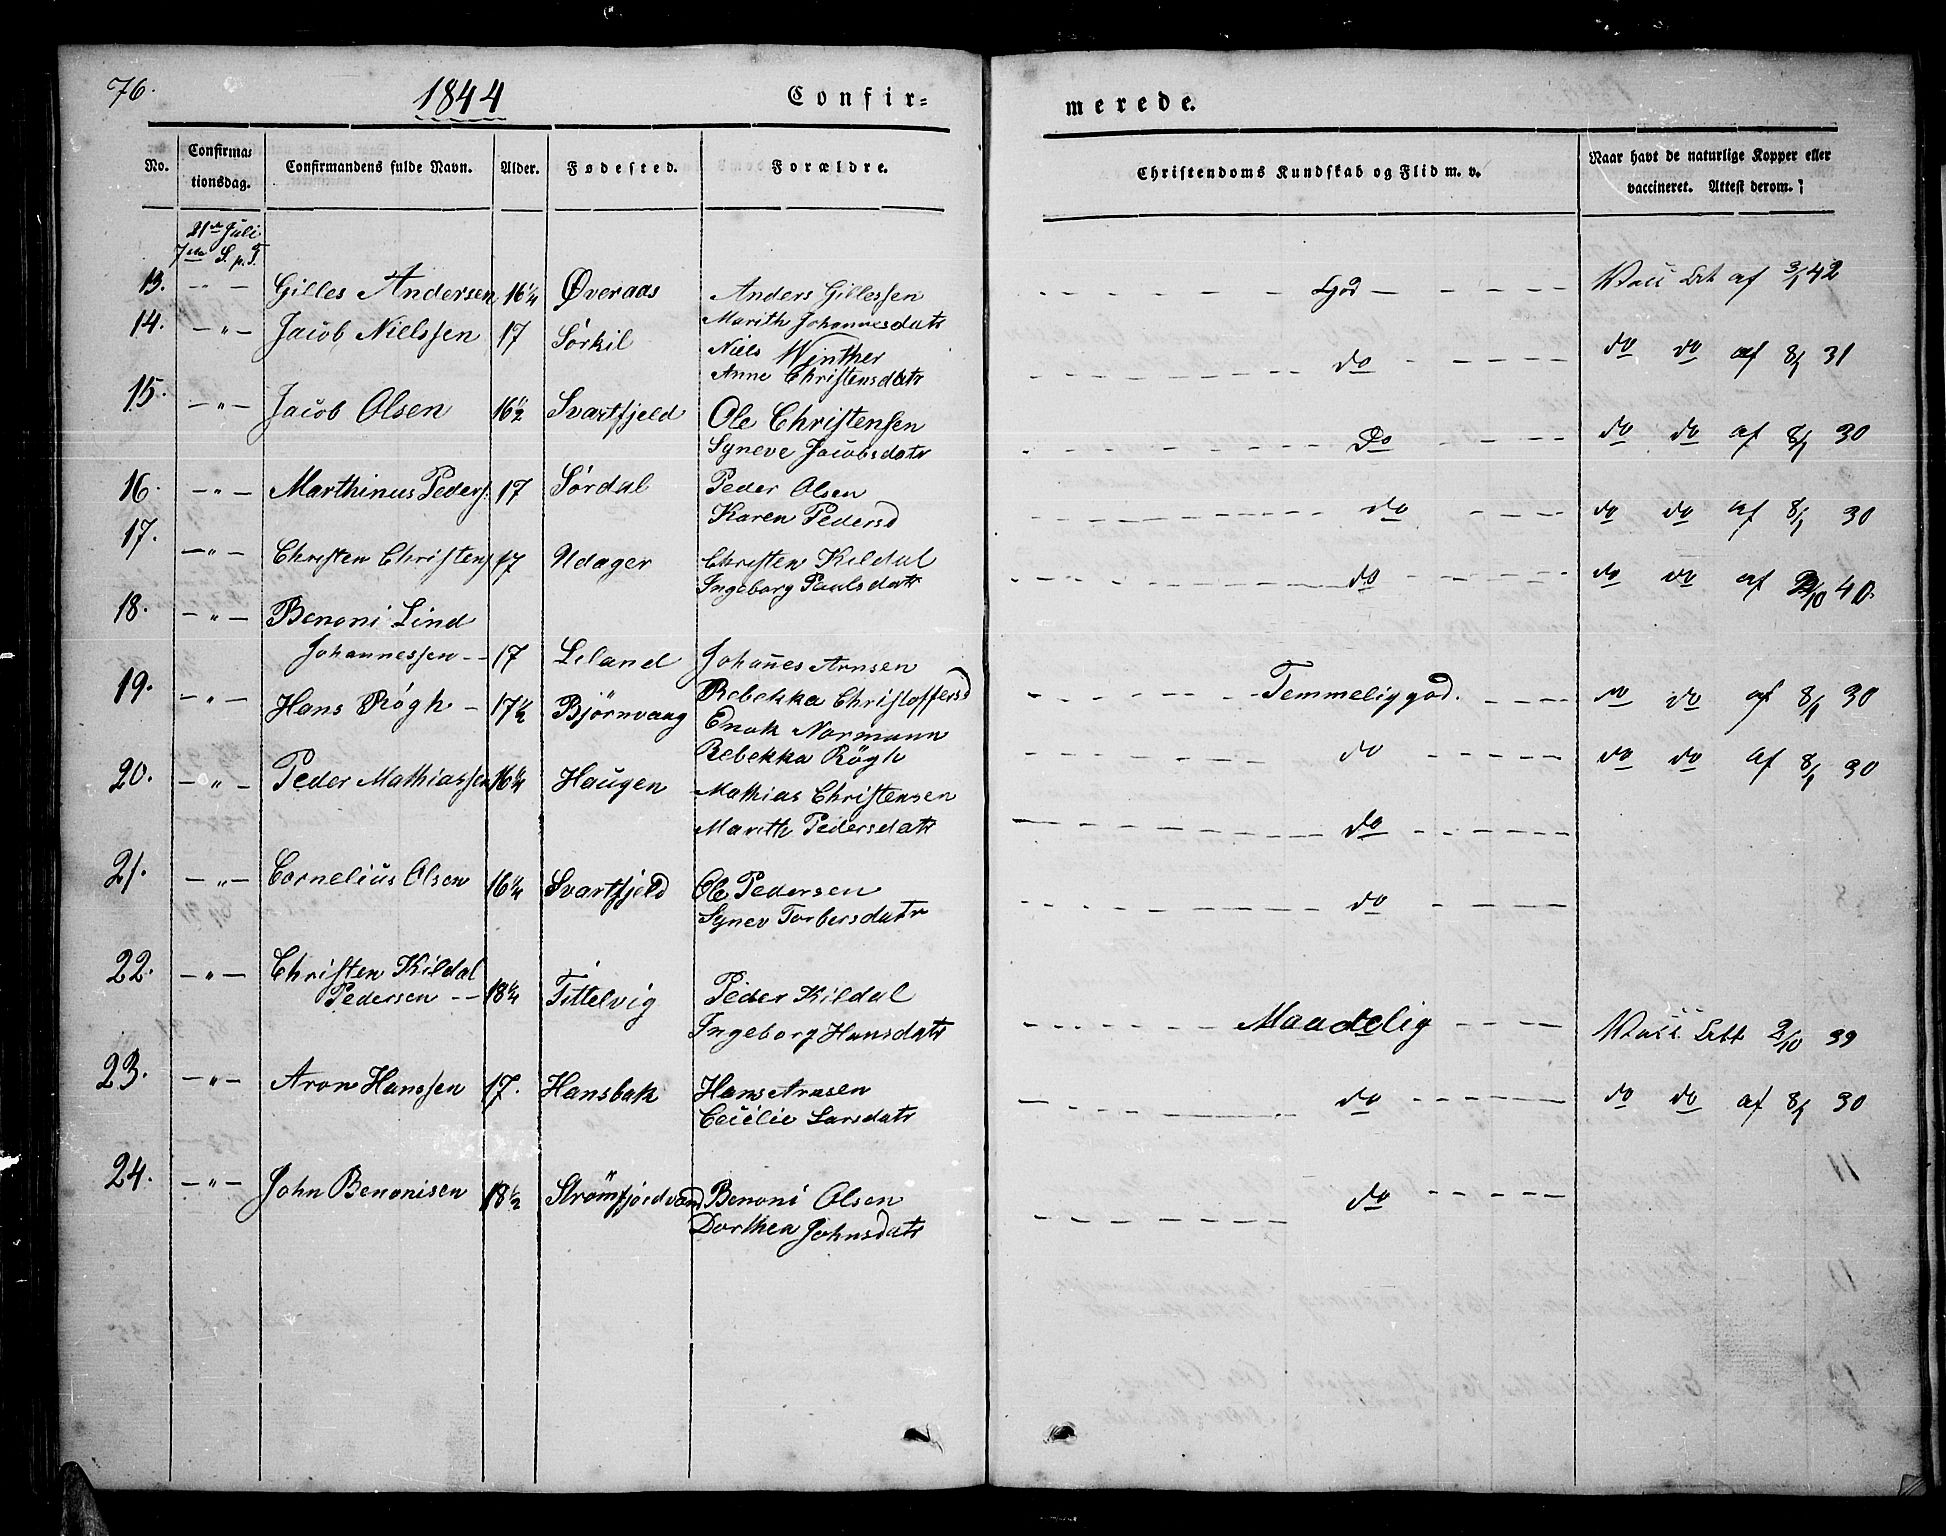 76.
1844
Confir=
merede.
No.
Confirma=
tionsdag.
Confirmandens fulde Navn.
Alder.
Fødested.
Forældre.
Christendoms Kundskab og Flid m. v.
Naar havt de naturlige Kopper eller
vaccineret. Attest derom.
21de Juli
7de S. p. T.
13. - - Gilles Andersen 16¼ Øveraas Anders Gillessen God Vacc Att af 3/1 42
Marith Johannesdatr
14. - " - Jacob Nielssen 17 Sørkil Niels Winther do do do af 8/1 31
Anne Christensdatr
15. - " - Jacob Olsen 16½ Svartfjeld Ole Christensen Do do do af 8/1 30
Syneve Jacobsdatr
16. - " - Marthinus Peders. 17 Sørdal Peder Olsen do do do af 8/1 30
Karen Pedersd
17. - " - Christen Christens 17 Udager Christen Kildal do do do af 2/10 40.
Ingeborg Paulsdatr
18. - " - Benoni Lind
Johannessen -- 17 Leland Johañes Arnsen Temmelig god. do do af 8/1 30
Rebekka Christoffersd
19. - " - Hans Røgh - 17½ Bjørnvang Enok Normann do do do af 8/1 30
Rebekka Røgh
20. - " - Peder Mathiassen 16¼ Haugen Mathias Christensen do
Marith Pedersdatr
21. - " - Cornelius Olsen 16¼ Svartfjeld Ole Pedersen do
Synev Torbersdatr
22. - " - Christen Kildal
Pedersen -- 18¼ Tittelvig Peder Kildal Maadelig Vacc Att 2/10 39
Ingeborg Hansdatr
23. - " - Aron Hanssen 17. Hansbak Hans Arnsen do do do af 8/1 30
Cecilie Larsdatr
24. - " - John Benonisen 18½ Strömfjordvand Benoni Olsen do
Dorthea Johnsdatr